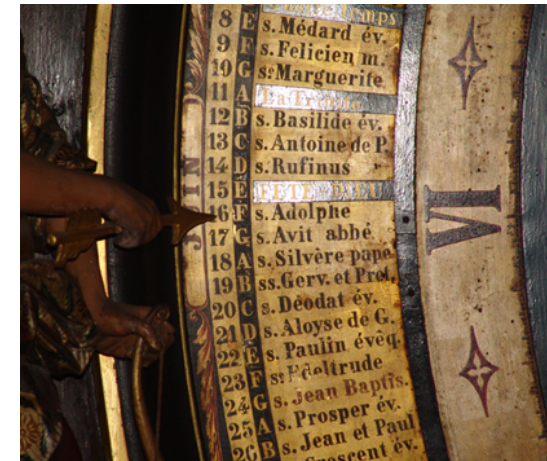 Temps
8 E s. Médard év.
9 F s. Felicien m.
10 G sᵉ Marguerite
11 A La Trinité
12 B s. Basilide év.
13 C s. Antoine de P.
14 D s. Rufinus
15 E FÊTE DIEU
16 F s. Adolphe
17 G s. Avit abbé
18 A s. Silvère pape
19 B ss. Gerv. et Prot.
20 C s. Déodat év.
21 D s. Aloyse de G.
22 E s. Paulin évêq.
23 F sᵉ Edeltrude
24 G s. Jean Baptis.
25 A s. Prosper év.
26 B s. Jean et Paul
Crescent év.
JUIN
VI